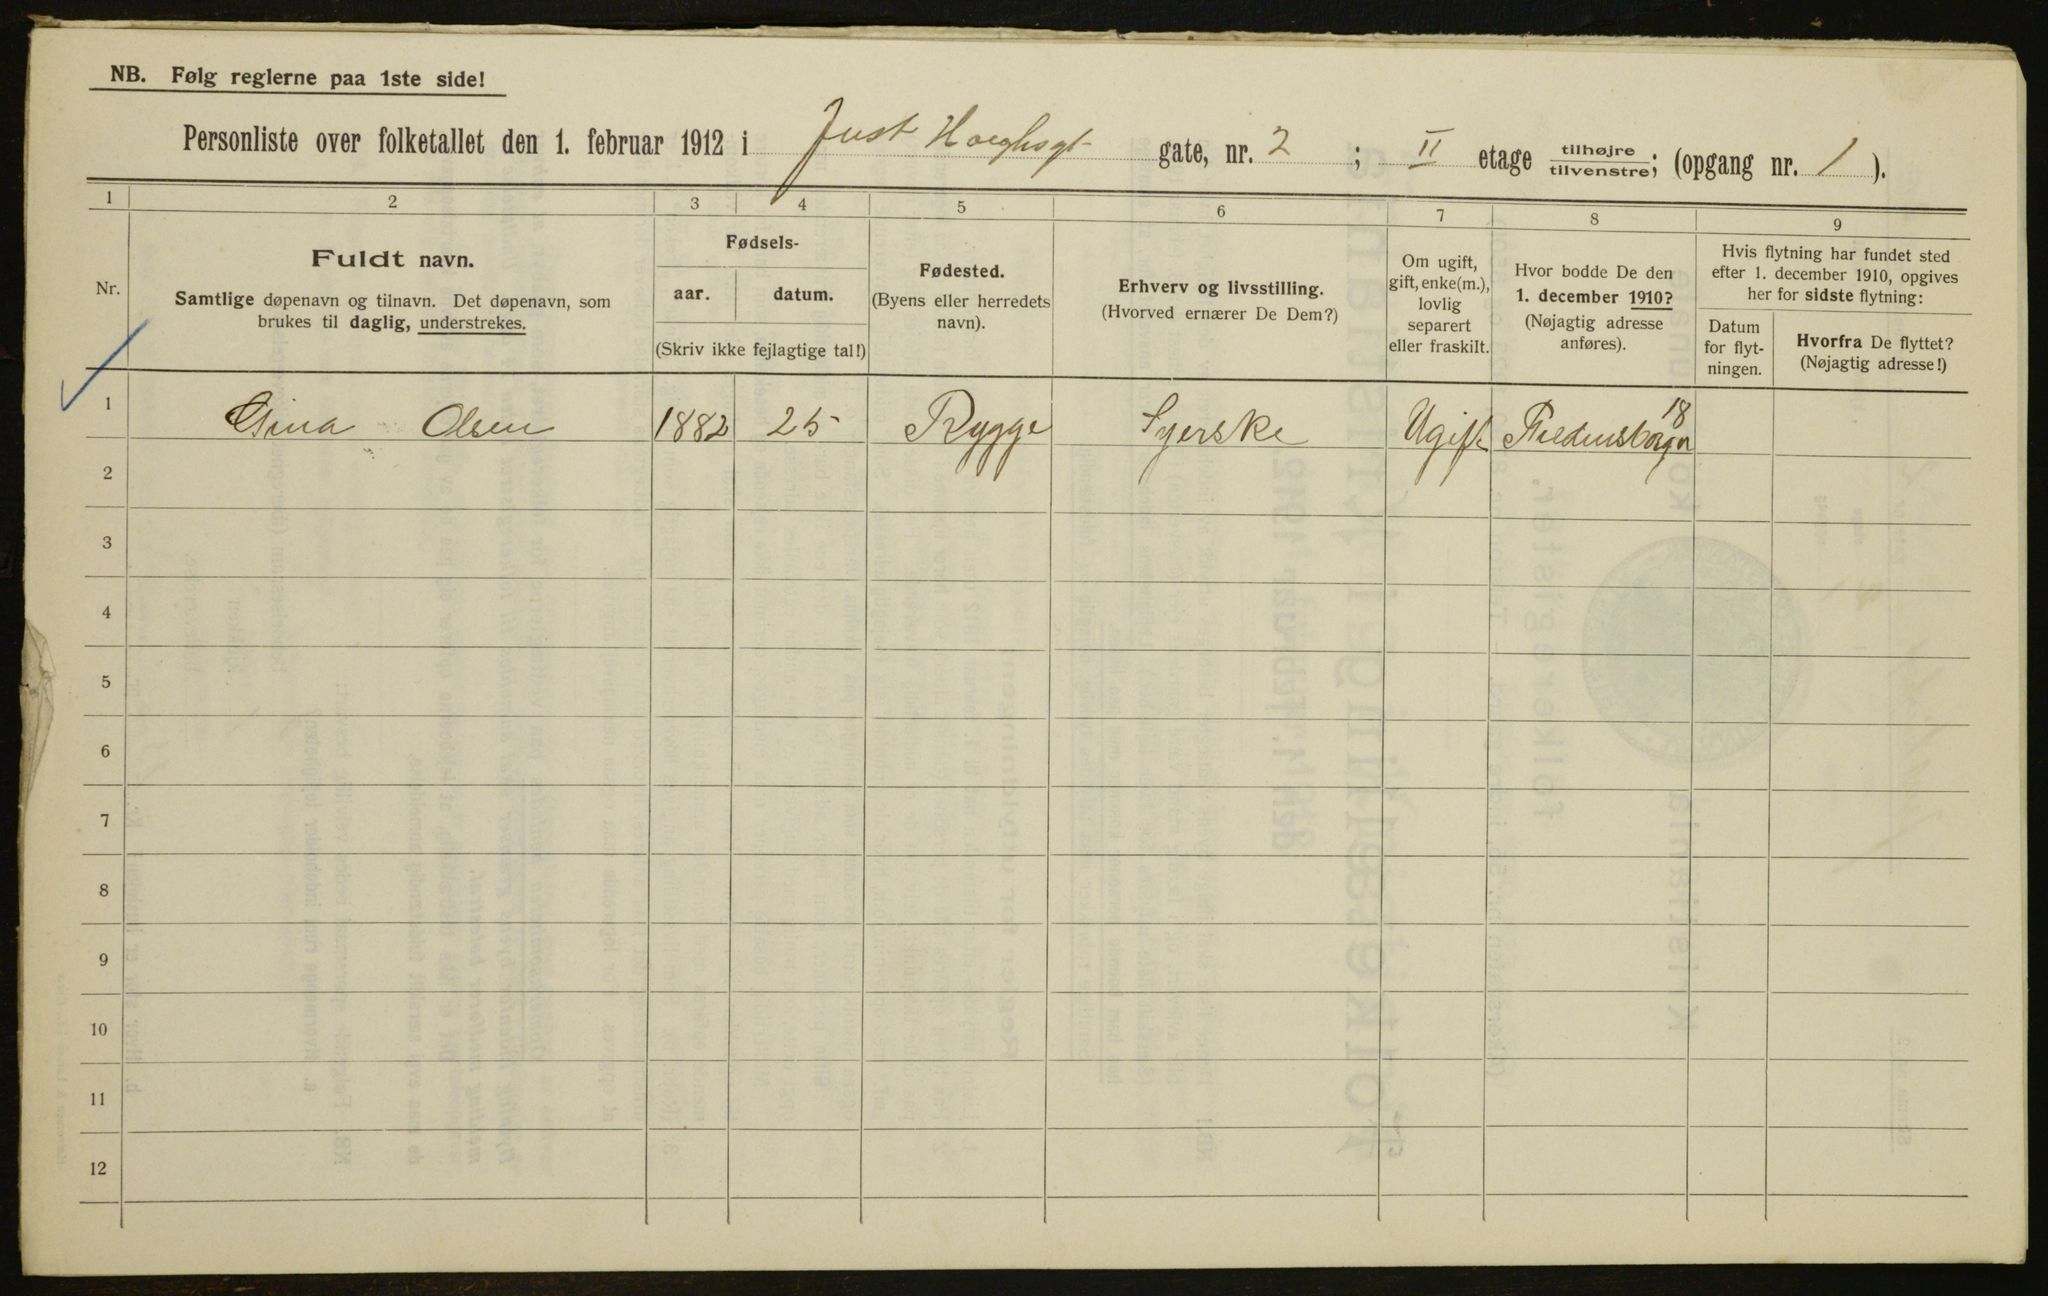 NB. Følg reglerne paa 1ste side!
Personliste over folketallet den 1. februar 1912 i Just Hoeghsgt gate, nr. 2 ; II etage tilhøjre / tilvenstre; (opgang nr. 1 ).
1 2 3 4 5 6 7 8 9
Nr.
Fuldt navn.
Samtlige døpenavn og tilnavn. Det døpenavn, som
brukes til daglig, understrekes.
Fødsels-
aar. datum.
(Skriv ikke fejlagtige tal!)
Fødested.
(Byens eller herredets
navn).
Erhverv og livsstilling.
(Hvorved ernærer De Dem?)
Om ugift,
gift, enke(m.),
lovlig
separert
eller fraskilt.
Hvor bodde De den
1. december 1910?
(Nøjagtig adresse
anføres).
Hvis flytning har fundet sted
efter 1. december 1910, opgives
her for sidste flytning:
Datum
for flyt-
ningen.
Hvorfra De flyttet?
(Nøjagtig adresse!)
1 Gina Olsen 1882 25 Rygge Syerske Ugift Fredensborgv 18
2
3
4
5
6
7
8
9
10
11
12